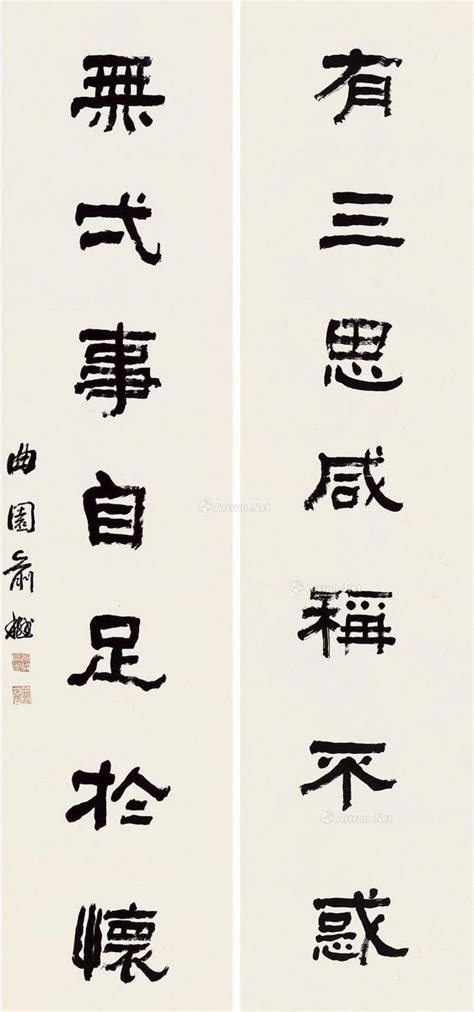 有三思咸稱不惑
無弌事自足於懷
曲園俞樾
Artron.Net
Artron.Net
Artron.Net